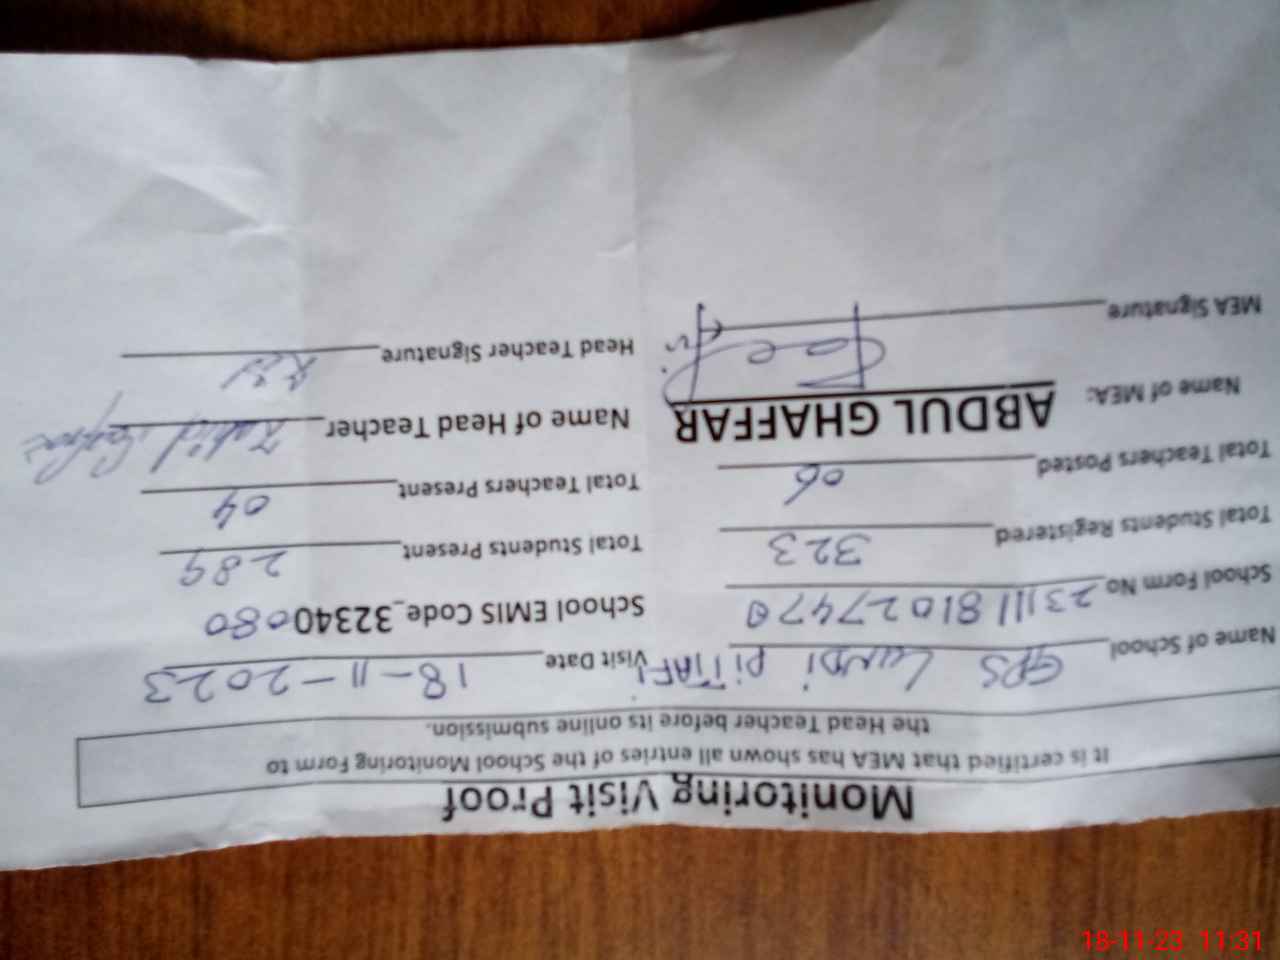 Monitoring Visit Proof
It is certified that MEA has shown all entries of the School Monitoring Form to
the Head Teacher before its online submission.
Name of School GPS Lundi PiTiAFi Visit Date 18-11-2023
School Form No 2311181027470 School EMIS Code_32340080
Total Students Registered 323 Total Students Present 289
Total Teachers Posted 06 Total Teachers Present 04
Name of MEA: ABDUL GHAFFAR Name of Head Teacher
MEA Signature Head Teacher Signature
18-11-23 11:31